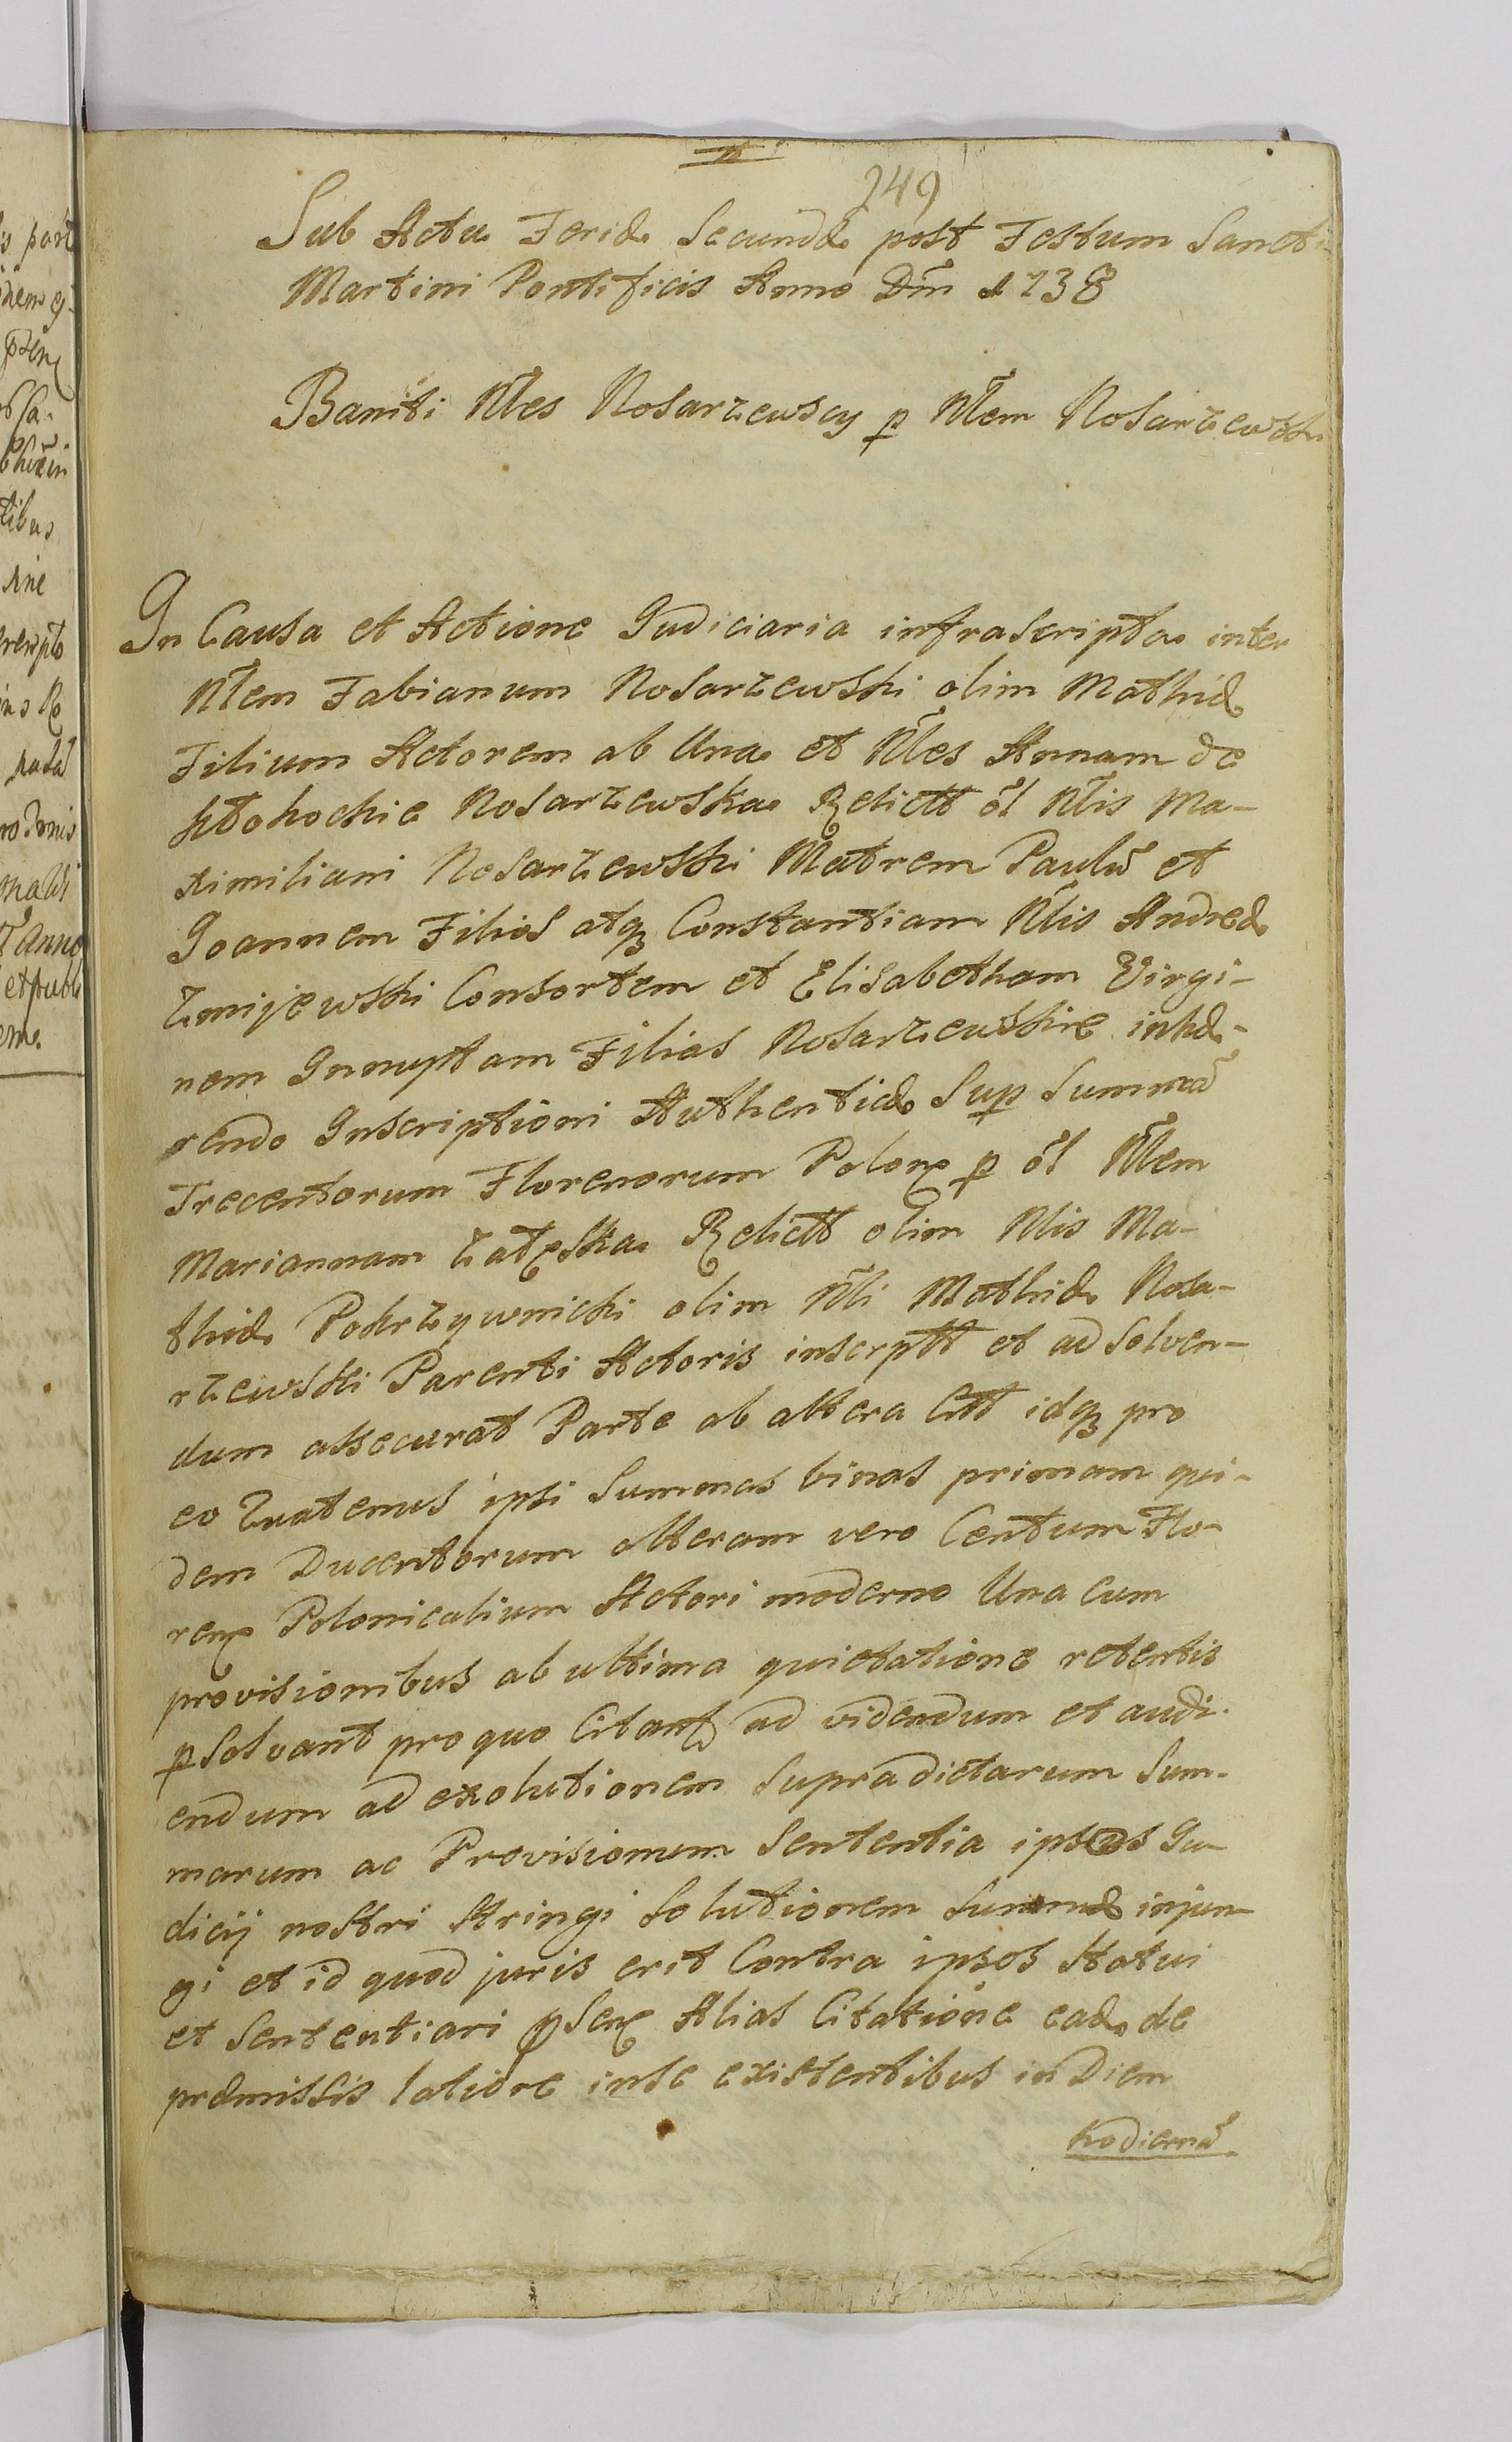 249
Sub Actu Feriæ Secundæ post Festum Sancti
Martini Pontificis Anno Dm̃ 1738
Baniti Nl̃es Nosarzewscy p Nl̃em Nosarzewski
In Causa et Actione Judiciaria infrascripta inter
Nl̃em Fabianum Nosarzewski olim Mathiæ
Filium Actorem ab Una et Nl̃es Annam de
Nosarzewska Relictt õl Nl̃is Ma-
ximiliani Nosarzewski Matrem Paulũ et
Joannem Filios atq Constantiam Nl̃is Andreæ
Zmijewski Consortem et Elisabetham Virgi-
nem Innuptam Filias Nosarzewskie inhæ-
rendo Inscriptioni Authenticæ Sup Summã
Trecentorum Florenorum Polon p õl Nl̃em
Mariannam Relictt olim Nlis Ma-
thiæ Pokrzywnicki olim Nl̃i Mathiæ Nosa-
rzewski Parenti Actoris inscrptt et ad solven-
dum assecurat Parte ab altera Citt idq pro
eo Quatenus ipsi Summas binas primam qui-
dem Ducentorum alteram vero Centum Flo-
ren Polonicalium Actori moderno Una cum
provisionibus ab ultima quietatione retentis
psolvant pro quo Citant ad videndum et audi-
endum ad exolutionem supradictarum Sum-
marum ac Provisionum Sententia ipsos Ju-
dicij nostri stringi solutionem Summæ injun-
gi et id quod juris erit Contra ipsos Statui
et Sententiari pSen Alias Citatione eadæ de
præmissis latiore inse existentibus in Diem
hodiernã